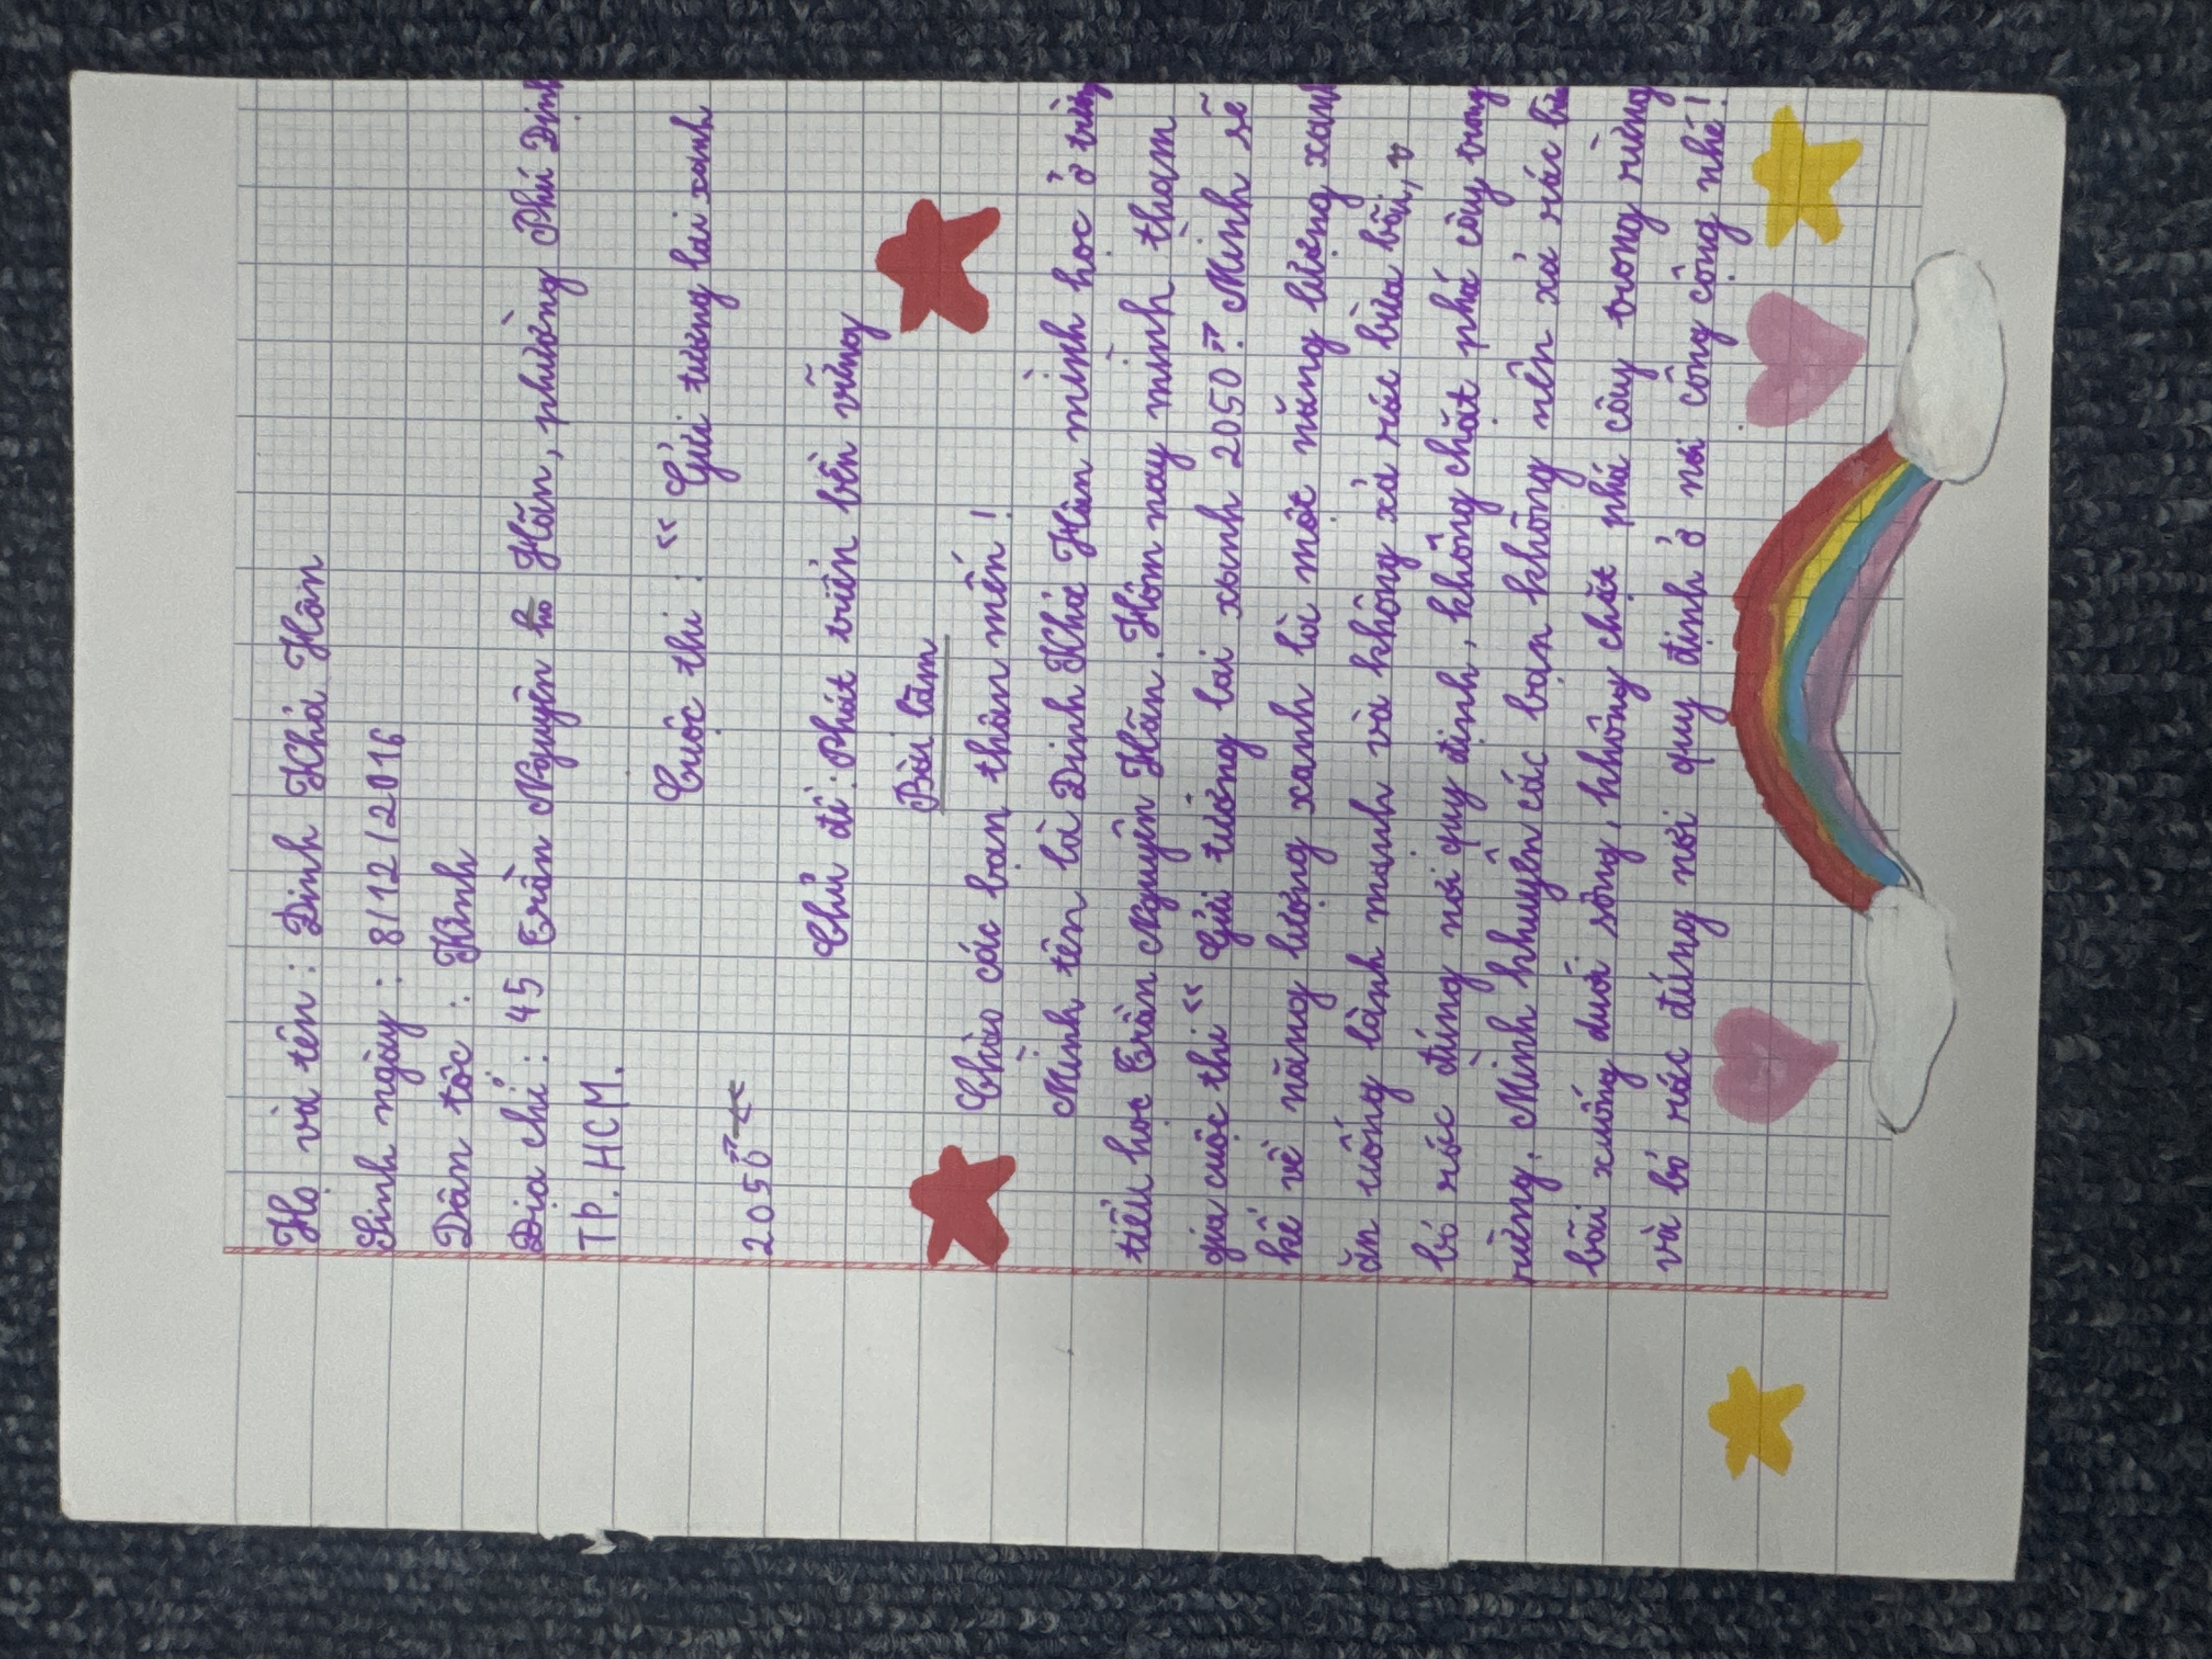 Họ và tên : Đinh Khả Hân
Sinh ngày : 8/12/2016
Dân tộc : Kinh
Địa chỉ : 45 Trần Nguyên Hãn, phường Phú Định
TP. HCM.
Cuộc thi : “ Gửi tương lai xanh
2050”
Chủ đề : Phát triển bền vững
Bài làm
Chào các bạn thân mến !
Mình tên là Đinh Khả Hân mình học ở trường
tiểu học Trần Nguyên Hãn. Hôm nay mình tham
gia cuộc thi “ Gửi tương lai xanh 2050”. Mình sẽ
kể về năng lượng xanh là một năng lượng xanh
ăn uống lành mạnh và không xả rác bừa bãi,
bỏ rác đúng nơi quy định, không chặt phá cây trong
rừng. Mình khuyên các bạn không nên xả rác bừa
bãi xuống dưới sông, không chặt phá cây trong rừng
và bỏ rác đúng nơi quy định ở nơi công cộng nhé !